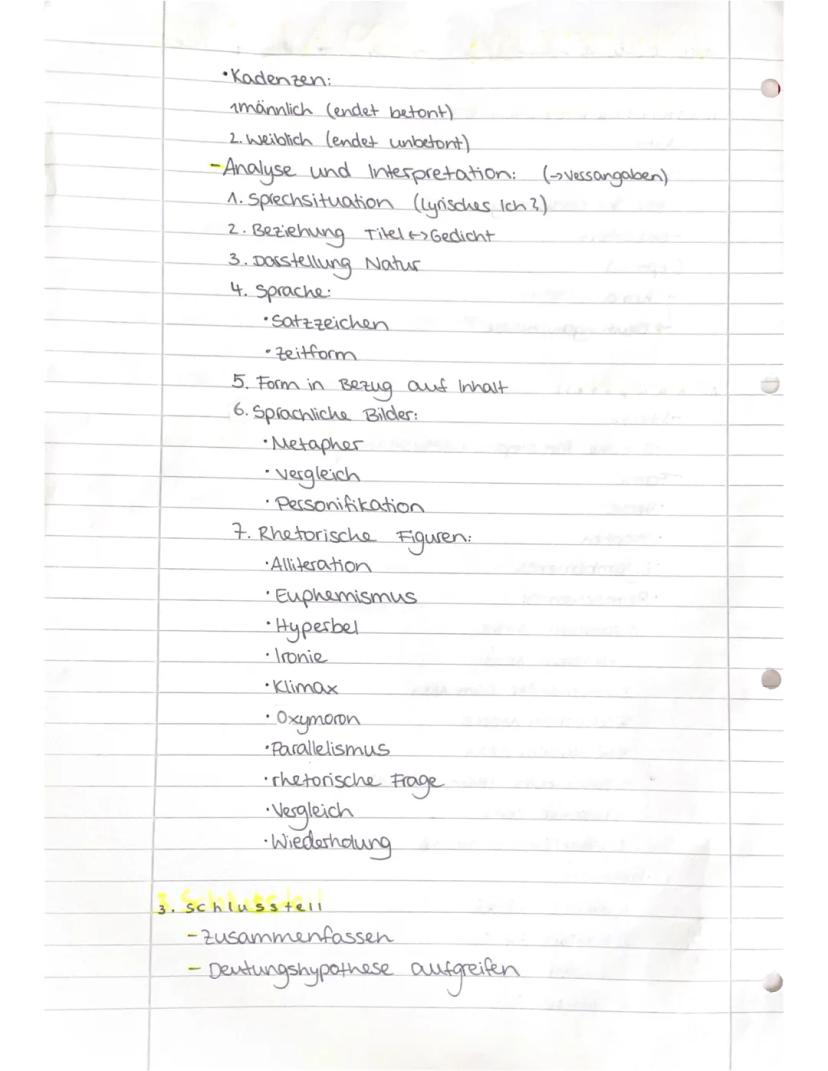 • Kadenzen:
1männlich (endet betont)
2. weiblich (endet unbetont)
- Analyse und Interpretation: (→ Versangaben)
1. Sprechsituation (lyrisches Ich?)
2. Beziehung Titel ↔ Gedicht
3. Darstellung Natur
4. Sprache:
• Satzzeichen
• Zeitform
5. Form in Bezug auf Inhalt
6. Sprachliche Bilder:
• Metapher
• Vergleich
• Personifikation
7. Rhetorische Figuren:
• Alliteration
• Euphemismus
• Hyperbel
• Ironie
• Klimax
• Oxymoron
• Parallelismus
• rhetorische Frage
• Vergleich
• Wiederholung
3. Schlussteil
- Zusammenfassen
- Deutungshypothese aufgreifen